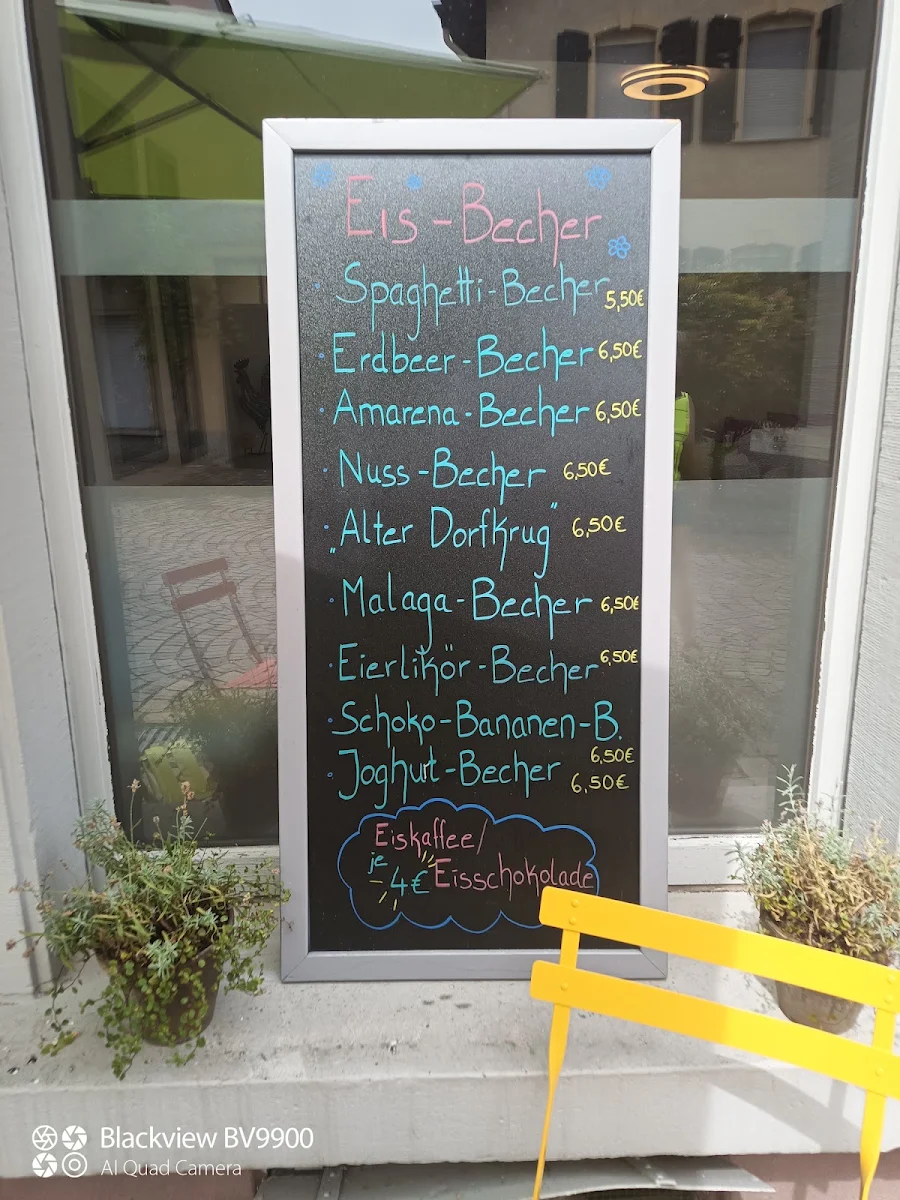 Eis-Becher
Spaghetti-Becher 5,50€
Erdbeer-Becher 6,50€
Amarena-Becher 6,50€
Nuss-Becher 6,50€
„Alter Dorfkrug“ 6,50€
Malaga-Becher 6,50€
Eierlikör-Becher 6,50€
Schoko-Bananen-B.
6,50€
Joghurt-Becher 6,50€
Eiskaffee/
je 4€ Eisschokolade
Blackview BV9900
AI Quad Camera